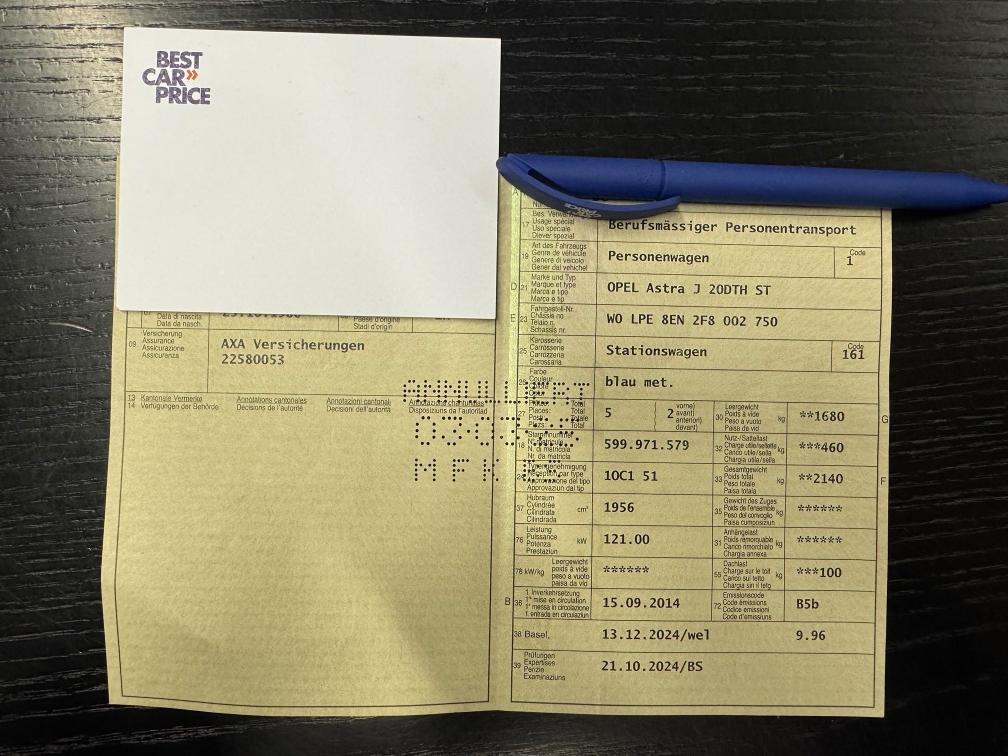 BEST
CAR»
PRICE
Data di nascita
Data da nasch.
Paese d'origine
Stadi d'origin
09 Versicherung
Assurance
Assicurazione
Assicuranza
AXA Versicherungen
22580053
13 Kantonale Vermerke Annotations cantonales Annotazioni cantonali Annotaziuns chantunalas
14 Verfügungen der Behörde Décisions de l'autorité Decisioni dell'autorità Disposiziuns da l'autoritad
ANNULLIERT
MFK
17 Bes. Verwendung
Usage spécial
Uso speciale
Diever spezial
Berufsmässiger Personentransport
19 Art des Fahrzeugs
Genre de véhicule
Genere di veicolo
Gener dal vehichel
Personenwagen
Code
1
D 21 Marke und Typ
Marque et type
Marca e tipo
Marca e tip
OPEL Astra J 20DTH ST
E 23 Fahrgestell-Nr.
Châssis no
Telaio n.
Schassis nr.
WO LPE 8EN 2F8 002 750
25 Karosserie
Carrosserie
Carrozzeria
Carossaria
Stationswagen
Code
161
26 Farbe
Couleur
blau met.
27 Total
Places: Total
Totale
Plazs: Total
5
2 vorne)
avant)
anteriori)
davant)
30 Leergewicht
Poids à vide
Peso a vuoto
Paisa da vid
kg
**1680
G
18 Stammnummer
N. di matricola
Nr. da matricla
599.971.579
32 Nutz-/Sattellast
Charge utile/sellette
Carico utile/sella
Chargia utila/sella
kg
***460
24 Typengenehmigung
Réception par type
Approvazione del tipo
Approvaziun dal tip
1OC1 51
33 Gesamtgewicht
Poids total
Peso totale
Paisa totala
kg
**2140
F
37 Hubraum
Cylindrée
Cilindrata
Cilindrada
cm³
1956
35 Gewicht des Zuges
Poids de l'ensemble
Peso del convoglio
Paisa cumposiziun
kg
******
76 Leistung
Puissance
Potenza
Prestaziun
kW
121.00
31 Anhängelast
Poids remorquable
Carico rimorchiato
Chargia annexa
kg
******
78 kW/kg Leergewicht
poids à vide
peso a vuoto
paisa da vid
******
55 Dachlast
Charge sur le toit
Carico sul tetto
Chargia sin il tetg
kg
***100
B 36 1. Inverkehrsetzung
1re mise en circulation
1a messa in circolazione
1. entrada en circulaziun
15.09.2014
72 Emissionscode
Code émissions
Codice emissioni
Code d'emissiuns
B5b
38 Basel,
13.12.2024/wel
9.96
39 Prüfungen
Expertises
Perizie
Examinaziuns
21.10.2024/BS